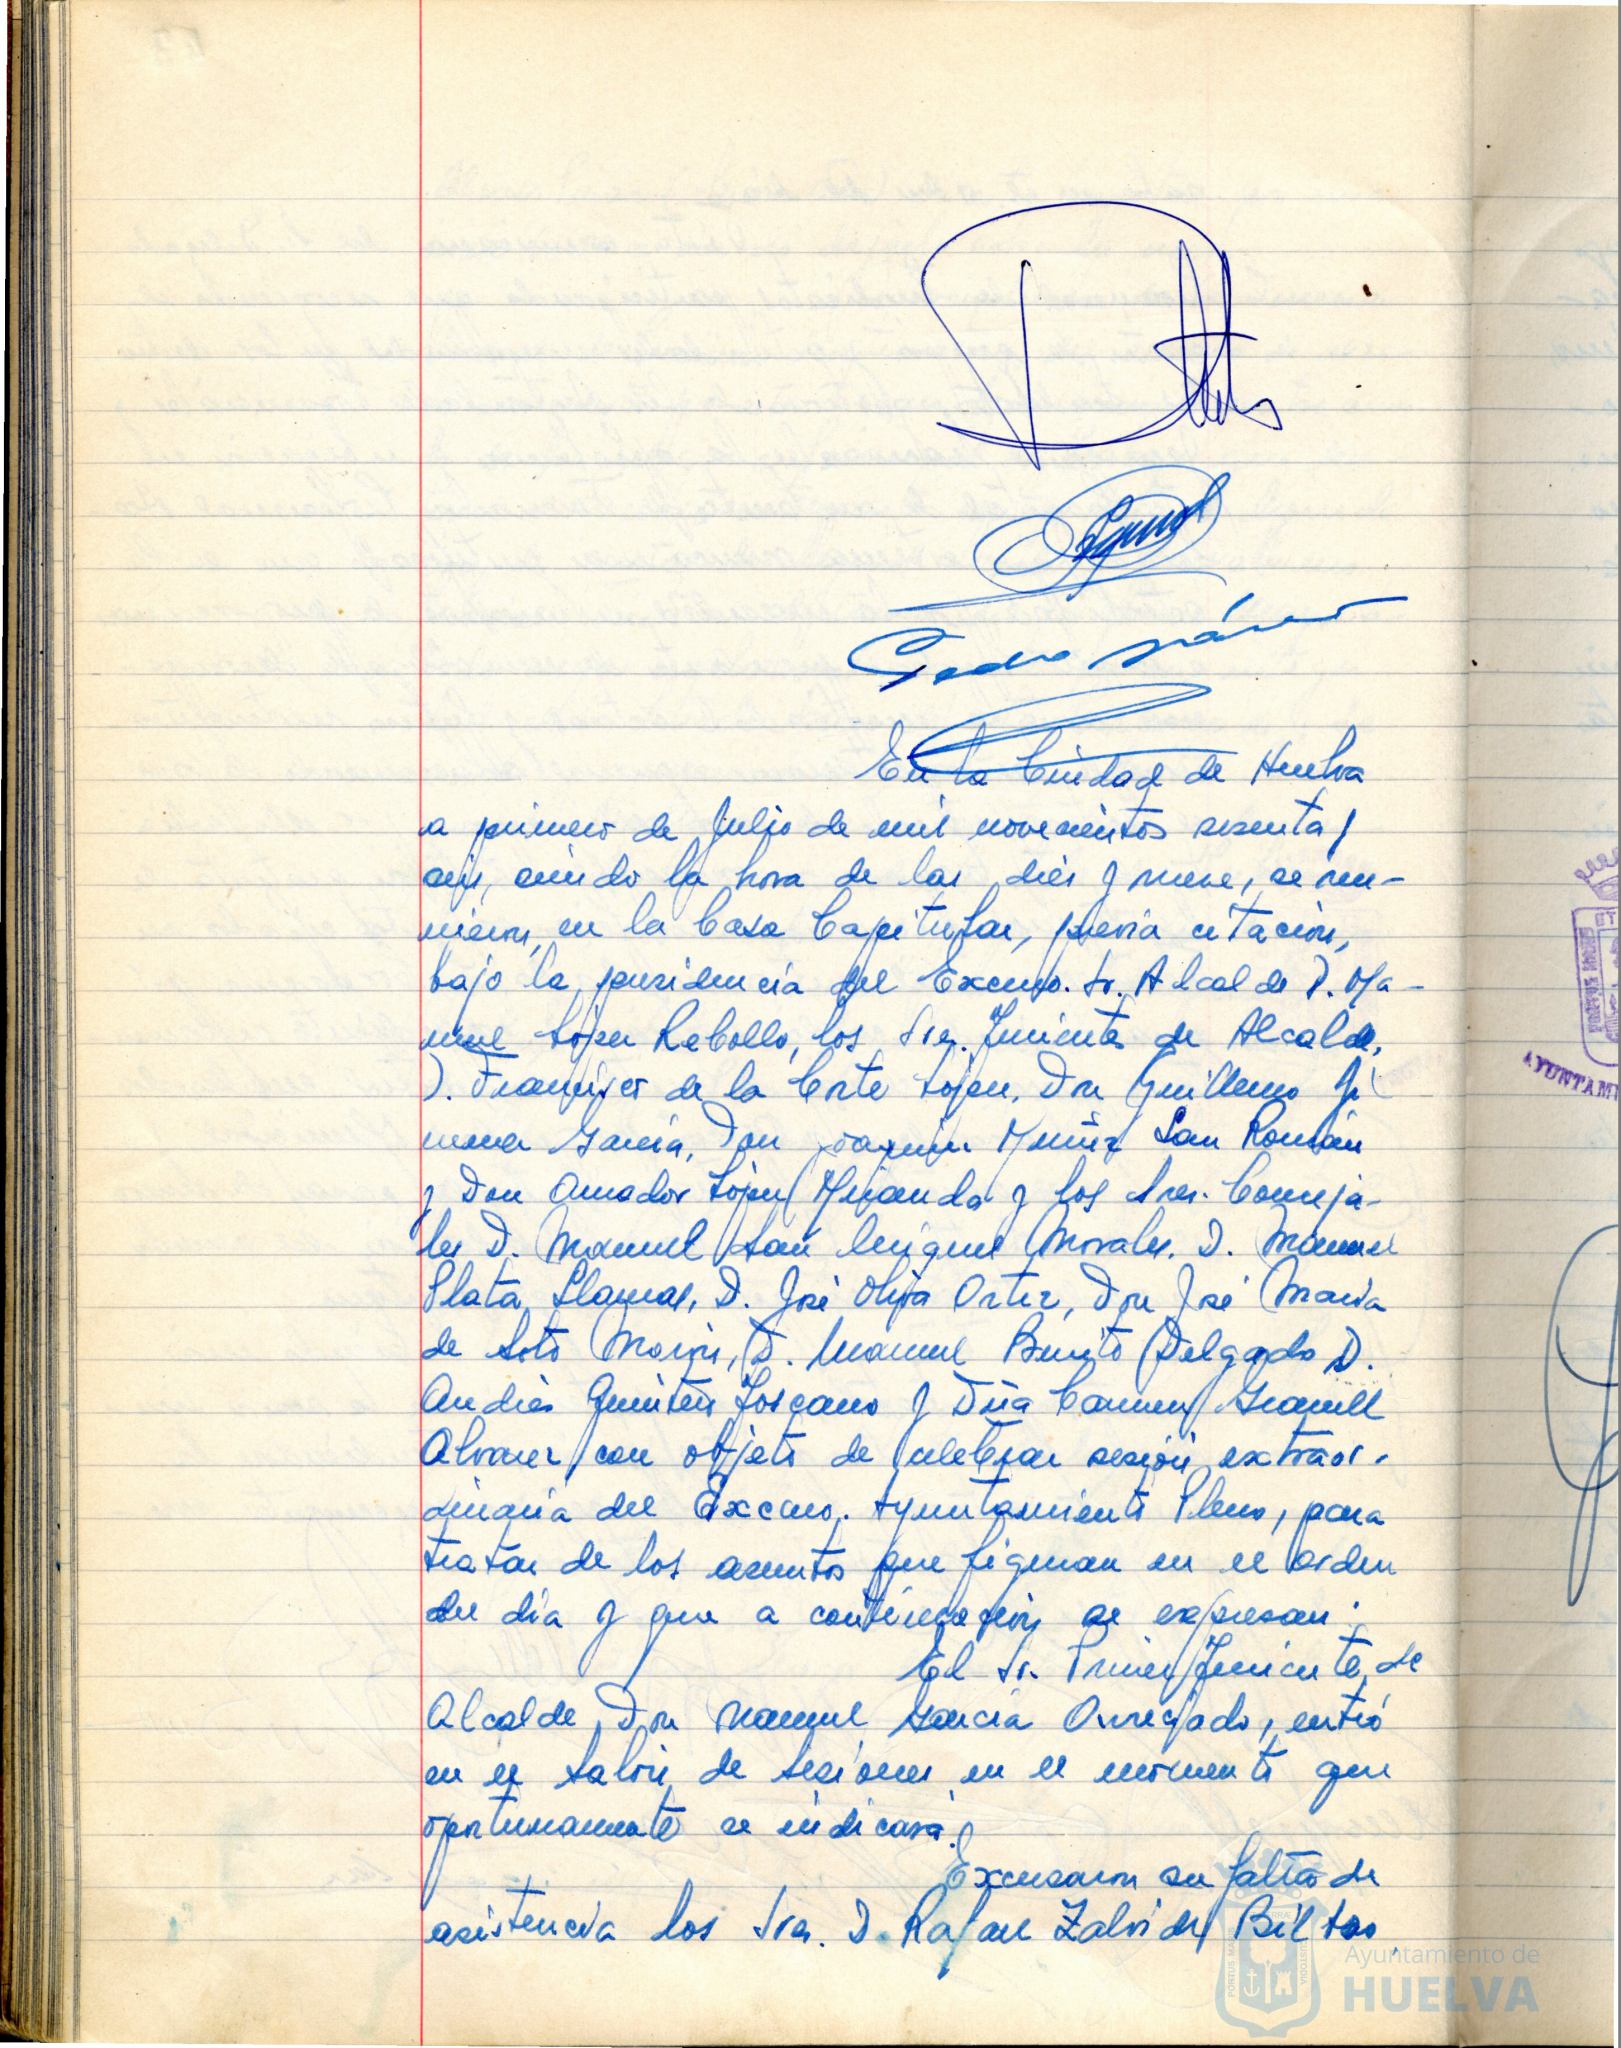 Pedro
En la Ciudad de Huelva
a primero de Julio de mil novecientos sesenta y
seis, siendo la hora de las diez y nueve, se reu-
nieron, en la Casa Capitular, previa citación,
bajo la presidencia del Excmo. Sr. Alcalde D. Ma-
nuel López Rebollo, los Sres. Tenientes de Alcalde,
D. Francisco de la Corte López, Don Guillermo Ji
menez García, Don Joaquin Muñiz San Román
y Don Amador López Miranda y los Sres. Conceja-
les D. Manuel San Miguel Morales, D. Manuel
Plata Llamas, D. José Oliva Ortiz, Don José Maria
de Soto Morón, D. Manuel Benito Delgado D.
Andrés Quintero Toscano y Dña Carmen
Alvarez con objeto de celebrar sesión extraor-
dinaria del Excmo. Ayuntamiento Pleno, para
tratar de los asuntos que figuran en el orden
del dia y que a continuación se expresan.
El Sr. Primer Teniente de
Alcalde, Don Manuel García, entró
en el Salón de Sesiones en el momento que
oportunamente se indicará.
Excusaron su falta de
asistencia los Sres. D. Rafael Zalvide
PORTUS MARIS
AYUNTAM
PORTUS MARIS
CUSTODIA
Ayuntamiento de
HUELVA